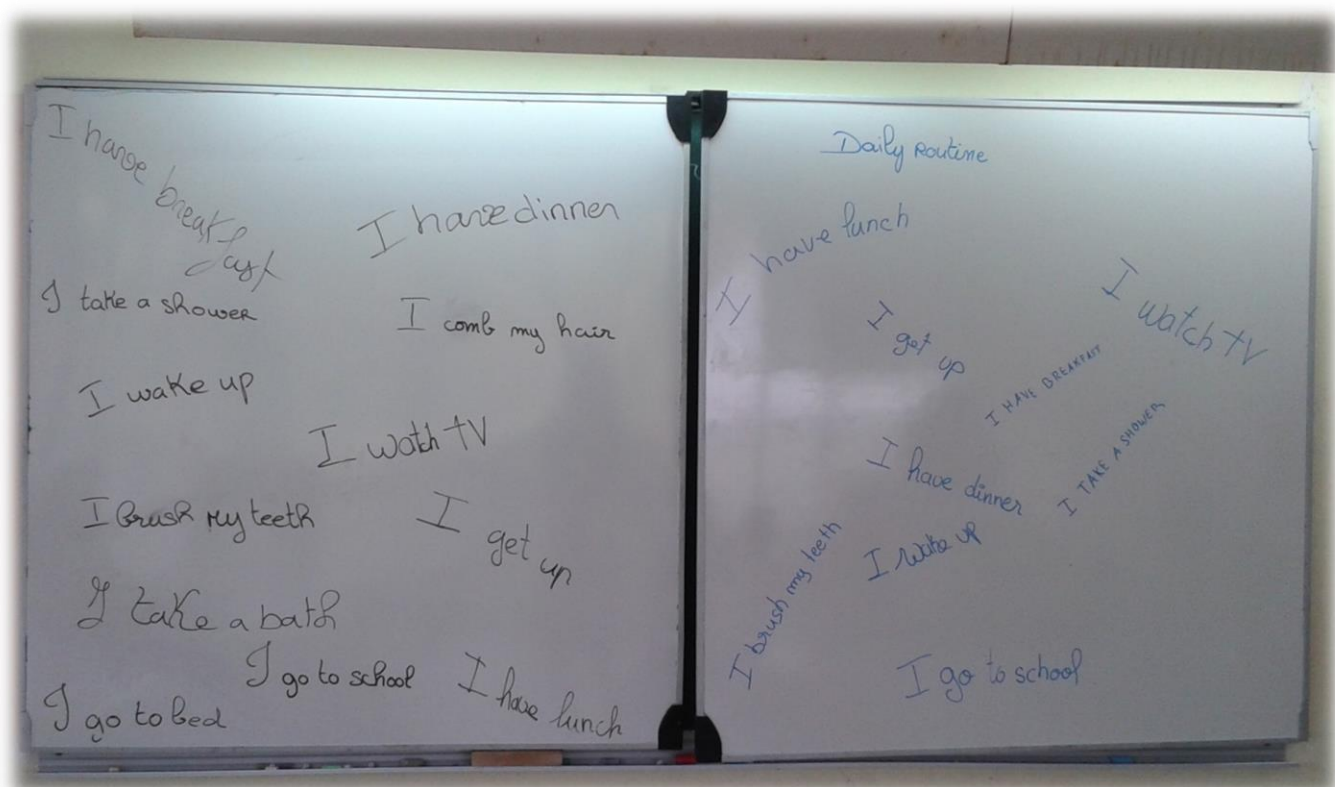 I have breakfast
I have dinner
I take a shower
I comb my hair
I wake up
I watch TV
I brush my teeth
I get up
I take a bath
I go to school
I have lunch
I go to bed
Daily routine
I have lunch
I watch TV
I get up
I HAVE BREAKFAST
I TAKE A SHOWER
I have dinner
I wake up
I brush my teeth
I go to school